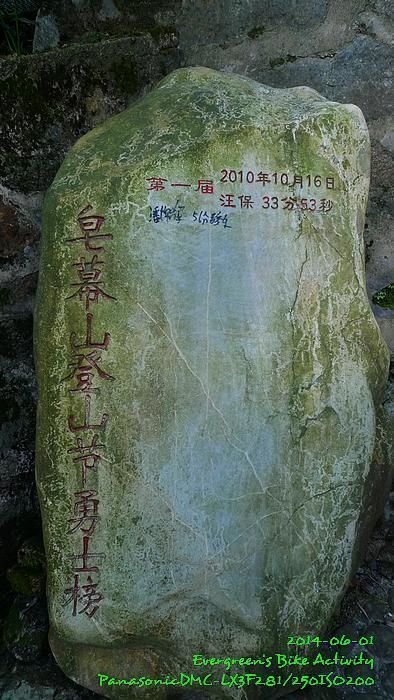 皂幕山登山节勇士榜
第一届
2010年10月16日
汪保 33分53秒
2014-06-01
Evergreen's Bike Activity
PanasonicDMC-LX3F2.81/250ISO200